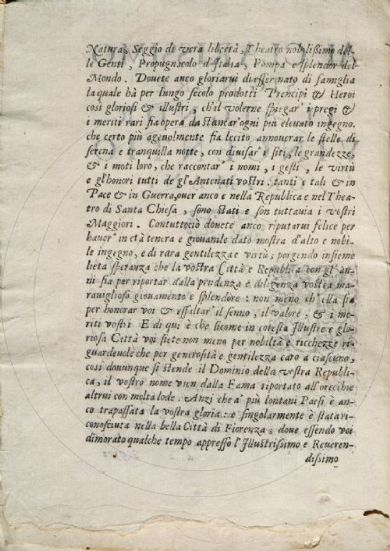 Natura, Seggio di vera libertà, Theatro nobilissimo del-
le Genti, Propugnacolo d'Italia, Pompa e splendor del
Mondo. Dovete anco gloriarvi d'esser nato di famiglia
la quale hà per lungo secolo prodotti Prencipi & Heroi
così gloriosi & illustri, ch'il volerne spiegar i pregi &
i meriti rari fia opera da stancar ogni più elevato ingegno.
che certo più agevolmente fia lecito annoverar le stelle di
serena e tranquilla notte, con divisar i siti, le grandezze,
& i moti loro, che raccontar i nomi, i gesti, le virtù
e gl'honori tutti de gl'Antenati vostri. tanti e tali & in
Pace & in Guerra, over anco e nella Republica e nel Thea-
tro di Santa Chiesa, sono stati e son tuttavia i vostri
Maggiori. Contuttociò dovete anco riputarvi felice per
haver in età tenera e giovanile dato mostra d'alto e nobi-
le ingegno, e di rara gentilezza e virtù; porgendo insieme
lieta speranza che la vostra Città e Republica con gl'an-
ni fia per riportar dalla prudenza e diligenza vostra ma-
raviglioso giovamento e splendore: non meno ch'ella fia
per honorar voi & essaltar il senno, il valore, & i me-
riti vostri E di qui è che sicome in cotesta Illustre e glo-
riosa Città voi siete non meno per nobiltà e ricchezze ri-
guardevole che per generosità e gentilezza caro a ciascuno,
così dovunque si stende il Dominio della vostra Republi-
ca, il vostro nome vien dalla Fama riportato all'orecchie
altrui con molta lode. Anzi che a' più lontani Paesi è an-
co trapassata la vostra gloria: e singolarmente è stata ri-
conosciuta nella bella Città di Fiorenza; dove essendo voi
dimorato qualche tempo appresso l'Illustrissimo e Reveren-
dissimo